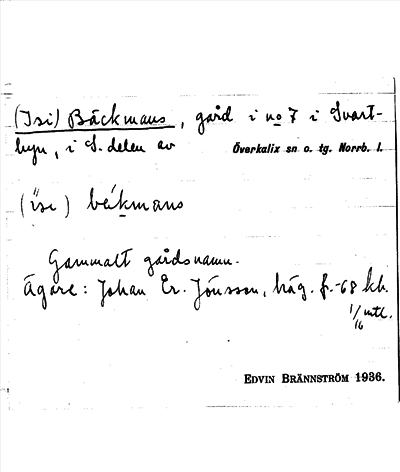 (Isi) Bäckmans, gård i no 7 i Svart-
byn, i S. delen av Överkalix sn o. tg. Norrb. l.
(ïsi) bäkmans
Gammalt gårdsnamn.
Ägare: Johan Er. Jönsson, häg. f. -68 kh.
1/16 mtl.
EDVIN BRÄNNSTRÖM 1936.